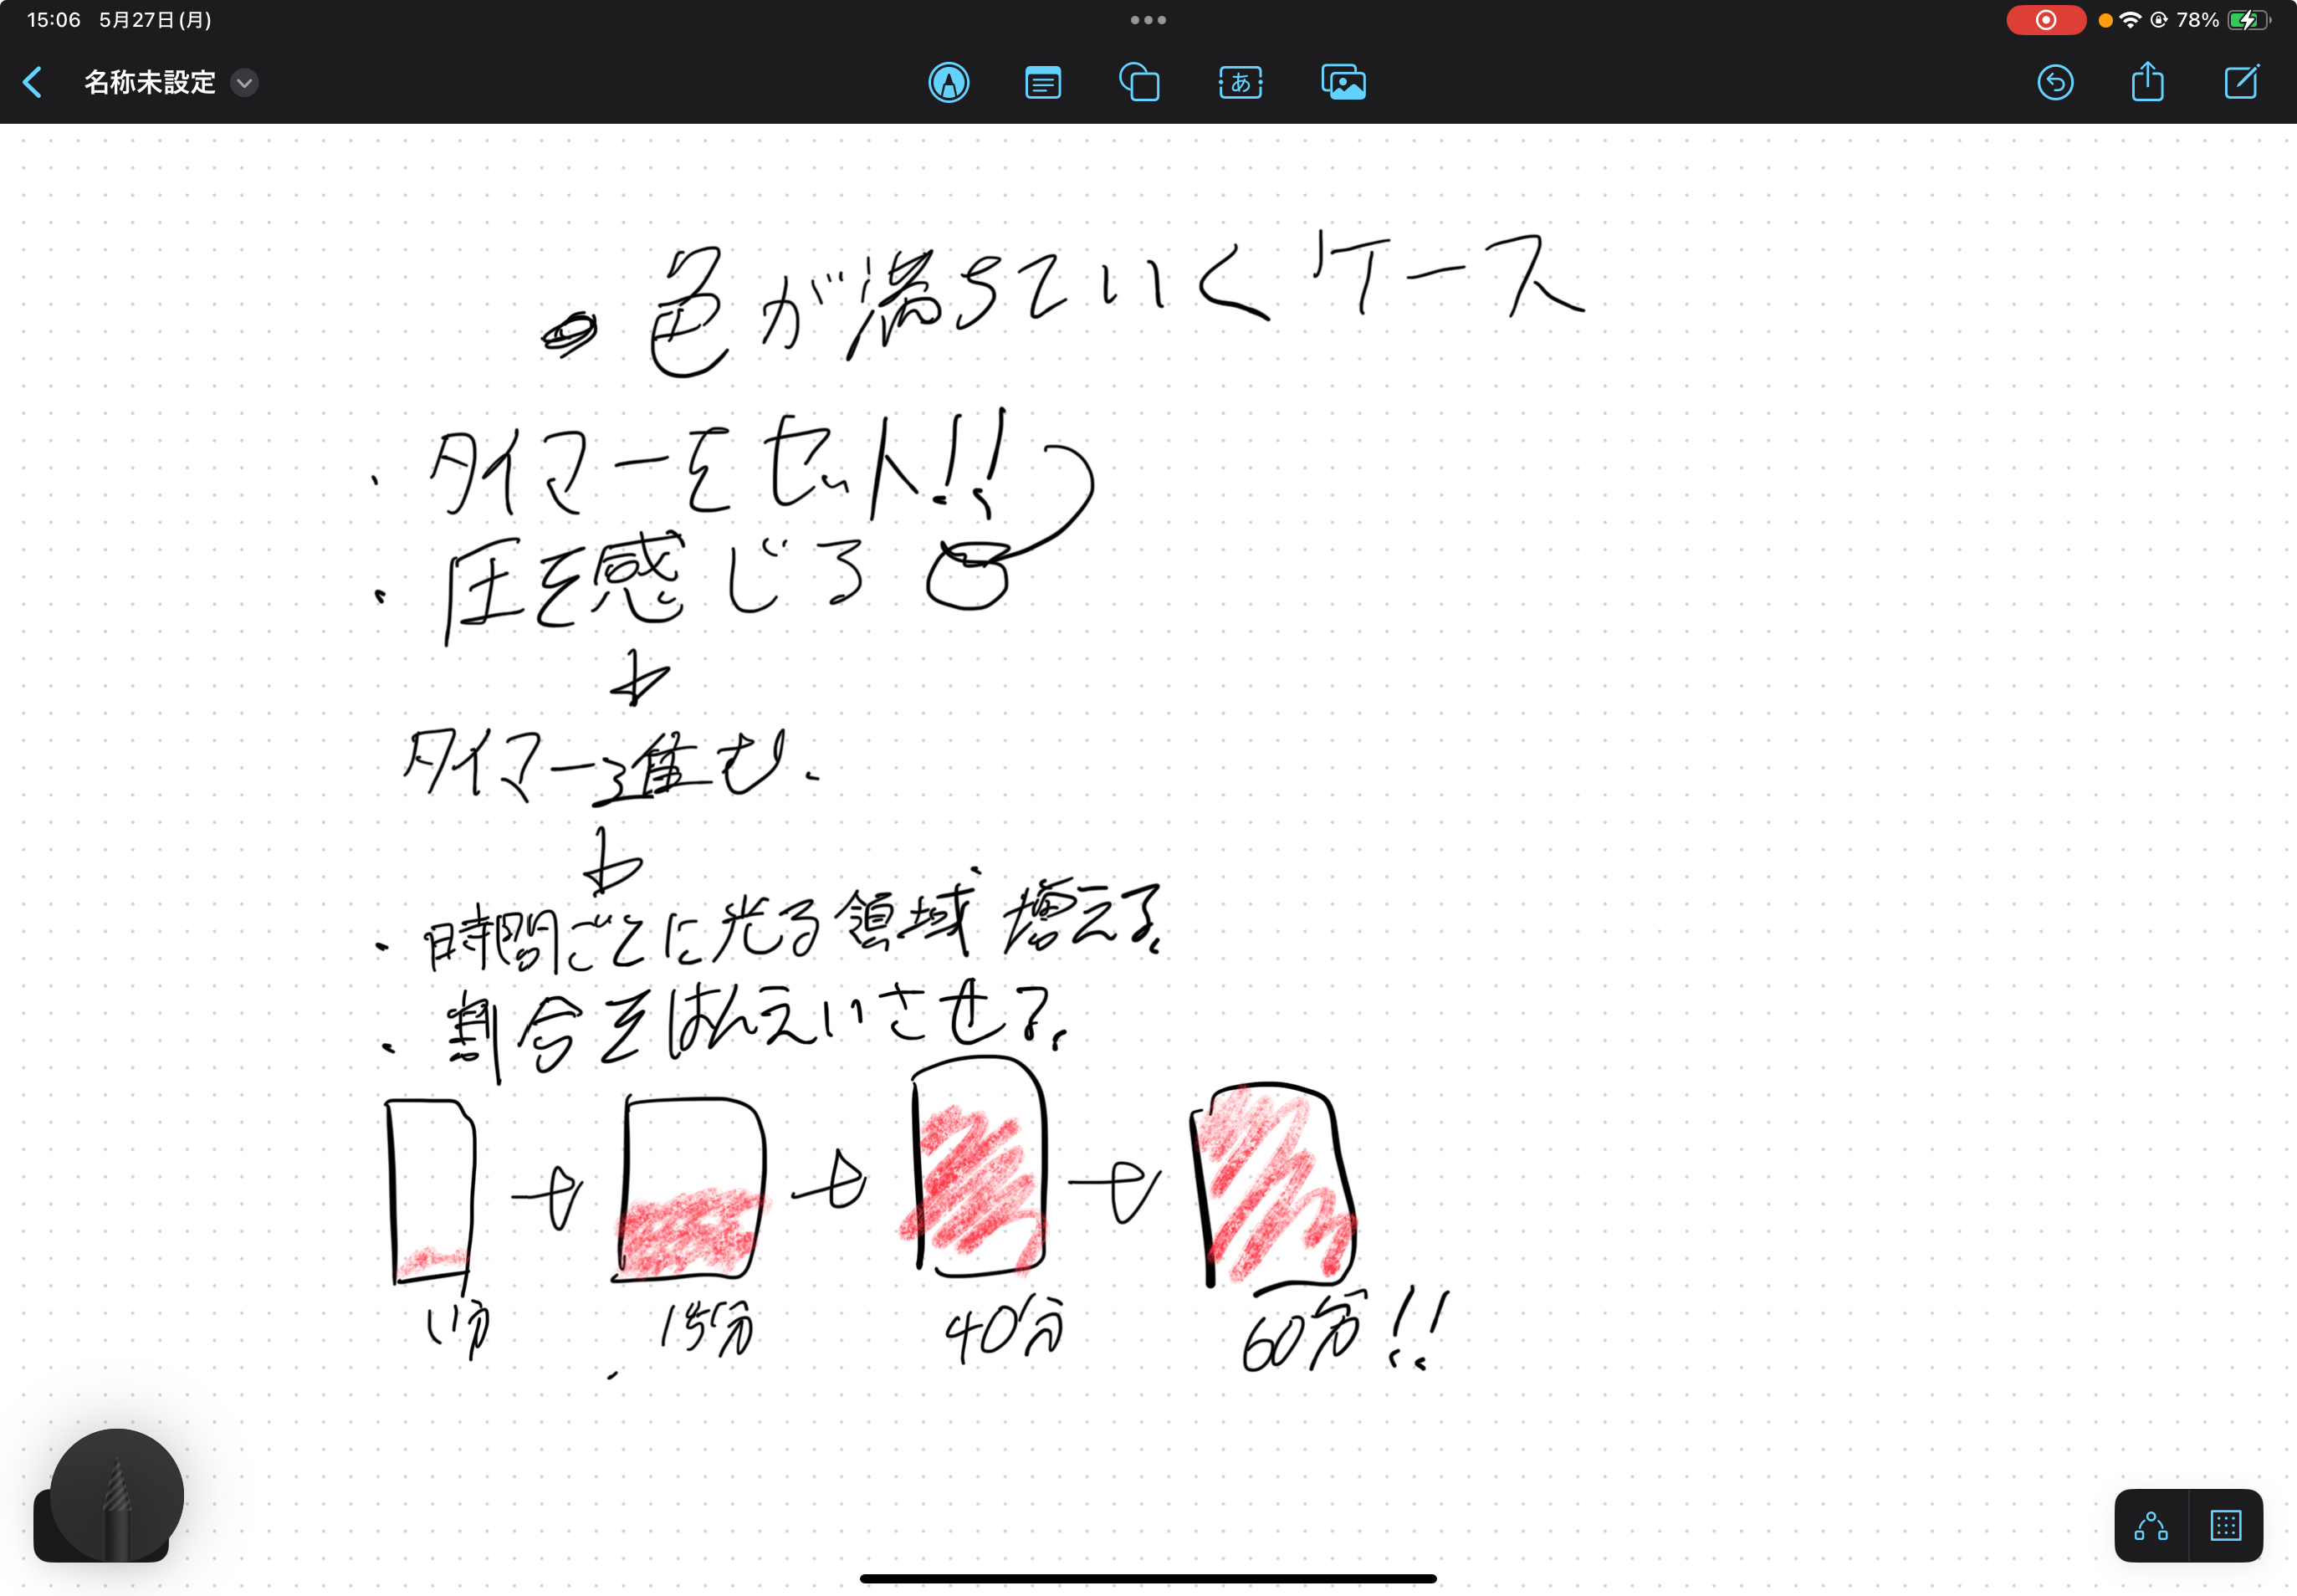 15:06 5月27日(月)
78%
名称未設定
あ
色が満ちていくケース
・タイマーをセット!!
・圧を感じる
タイマー進む.
・時間ごとに光る領域増える.
・割合をはんえいさせる.
1分
15分
40分
60分!!